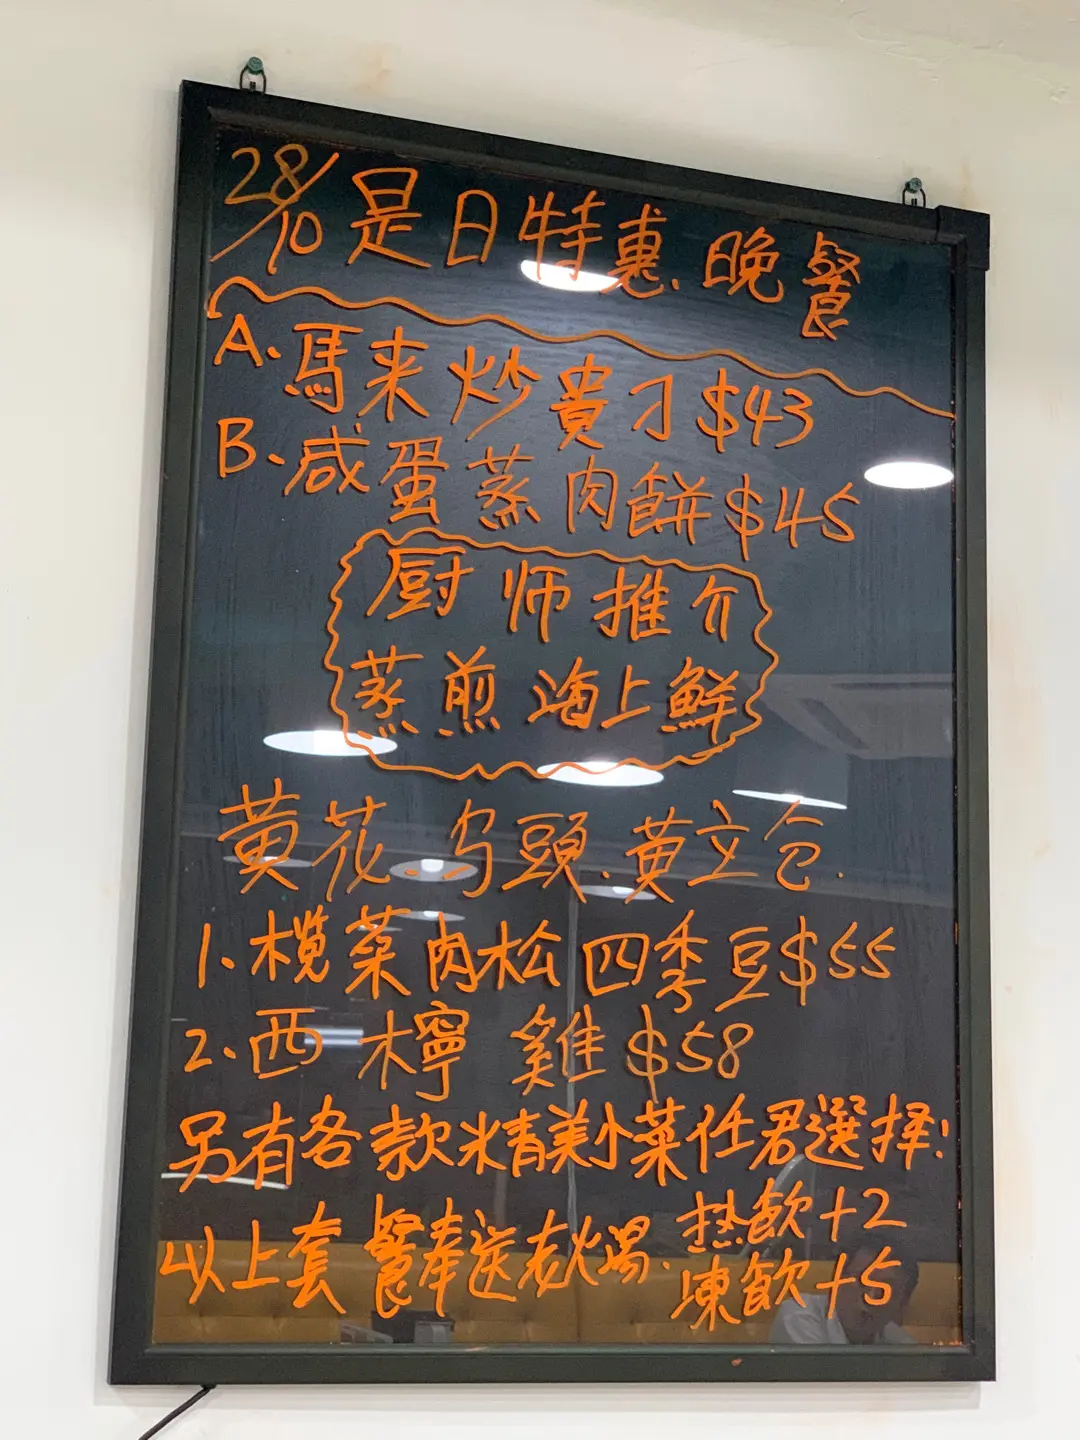 28/10是日特惠.晚餐
A.馬来炒貴刁$43
B.咸蛋蒸肉餅$45
厨师推介
蒸煎海上鮮
黄花.乌頭.黄立仓.
1.榄菜肉松四季豆$55
2.西檸雞$58
另有各款精美小菜任君選择!
以上套餐奉送老火湯.
热飲+2
凍飲+5